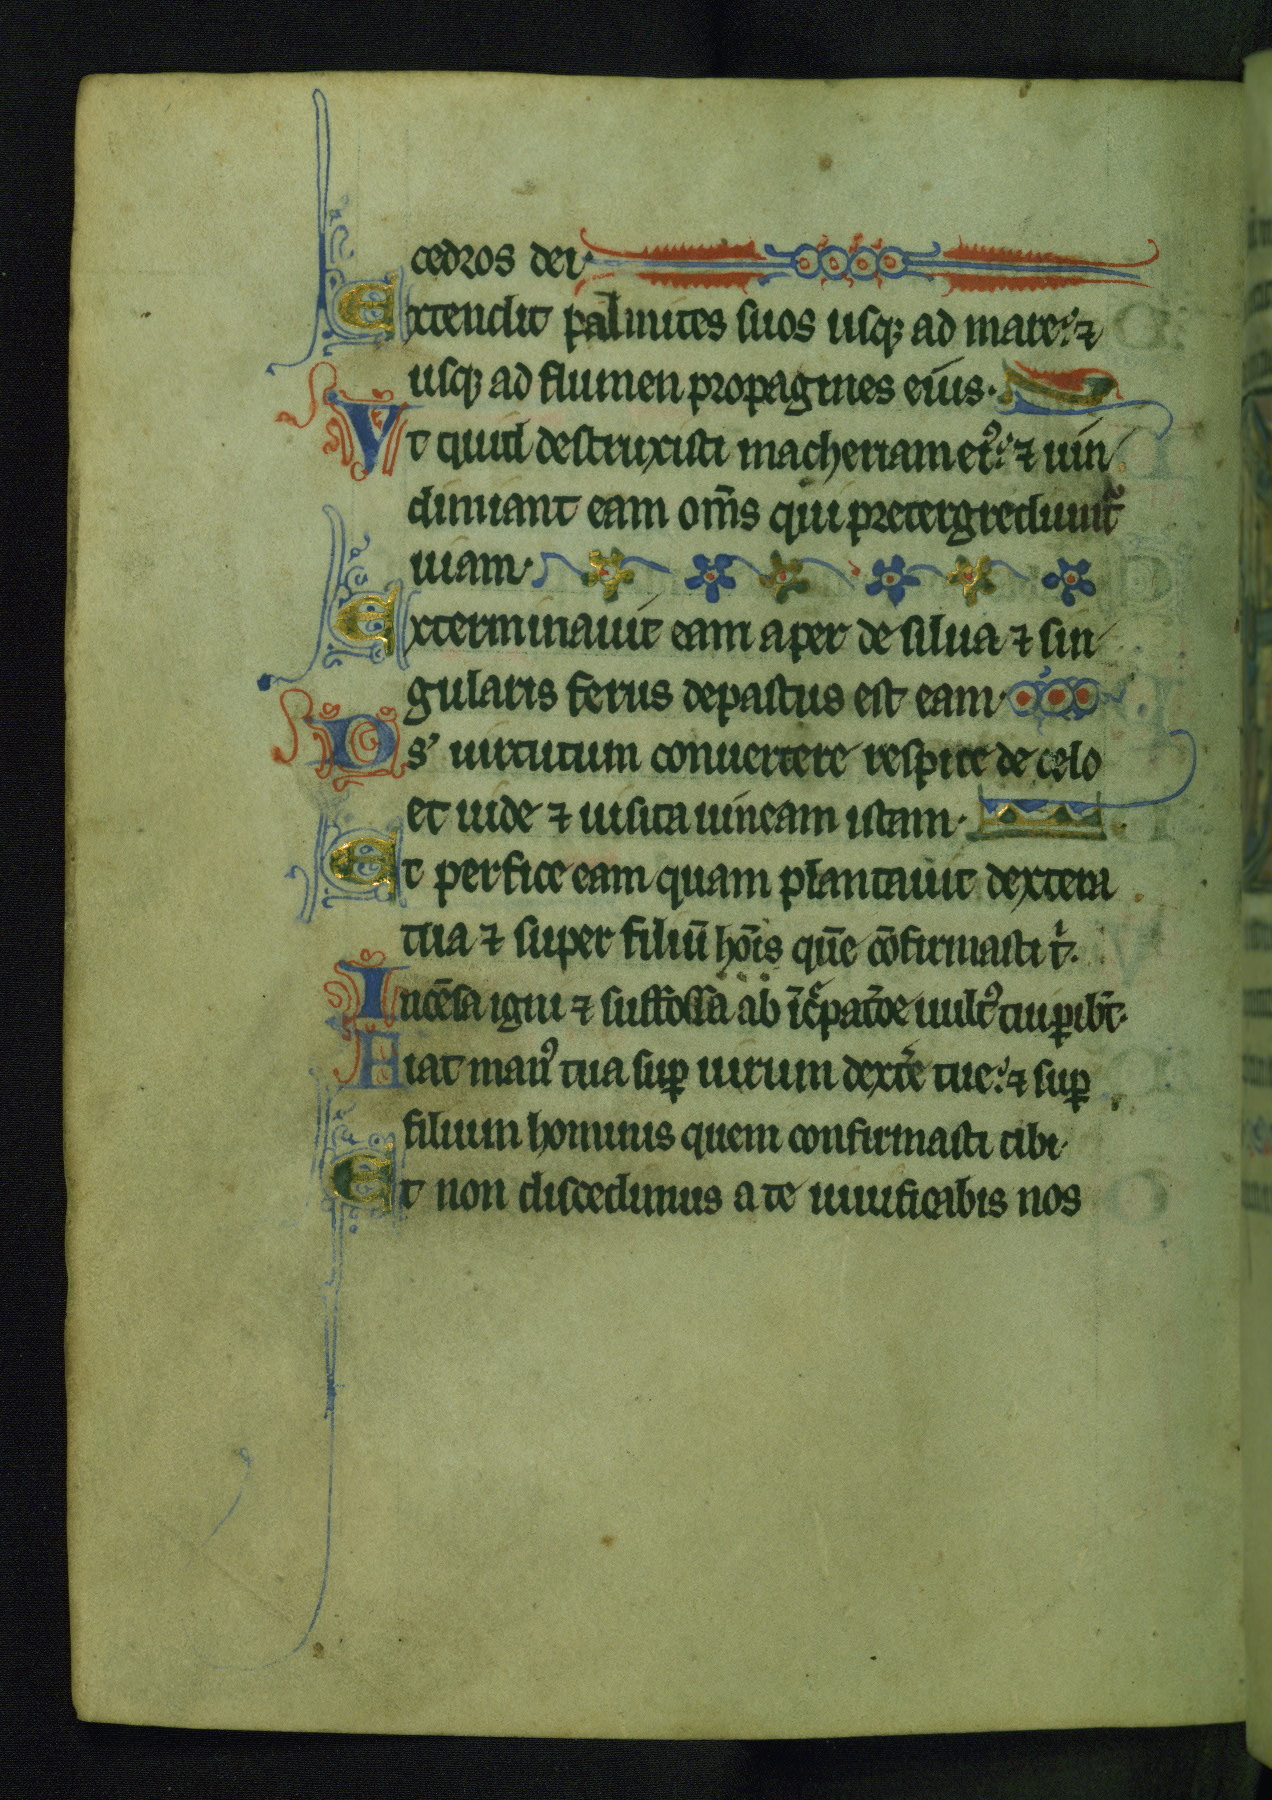 cedros dei·
Extendit palmites suos usq; ad mare: ⁊
usq; ad flumen propagines eius·
Vt quid destruxisti macheriam eiꝰ: ⁊ uin
dimiant eam om̄s qui pretergrediunt᷑
uiam·
Exterminauit eam aper de silua ⁊ sin
gularis ferus depastus est eam·
Ds’ uirtutum conuertere respice de celo
et uide ⁊ uisita uineam istam·
Et perfice eam quam plantauit dextera
tua ⁊ super filiū hoīs quē cōfirmasti t¹·
Incēsa igni ⁊ suffossa ab īcͣpatōe uultꝰ tui ꝑibt̄·
Fiat manꝰ tua suꝑ uirum dext̄e tue: ⁊ suꝑ
filium hominis quem confirmasti tibi·
Et non discedimus a te uiuificabis nos